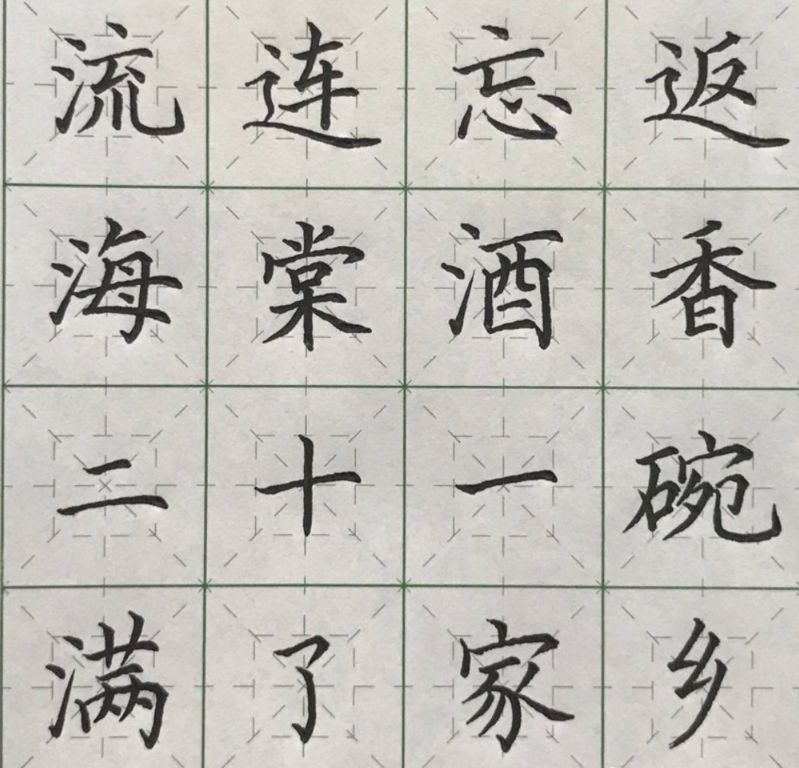 流连忘返
海棠酒香
二十一碗
满了家乡